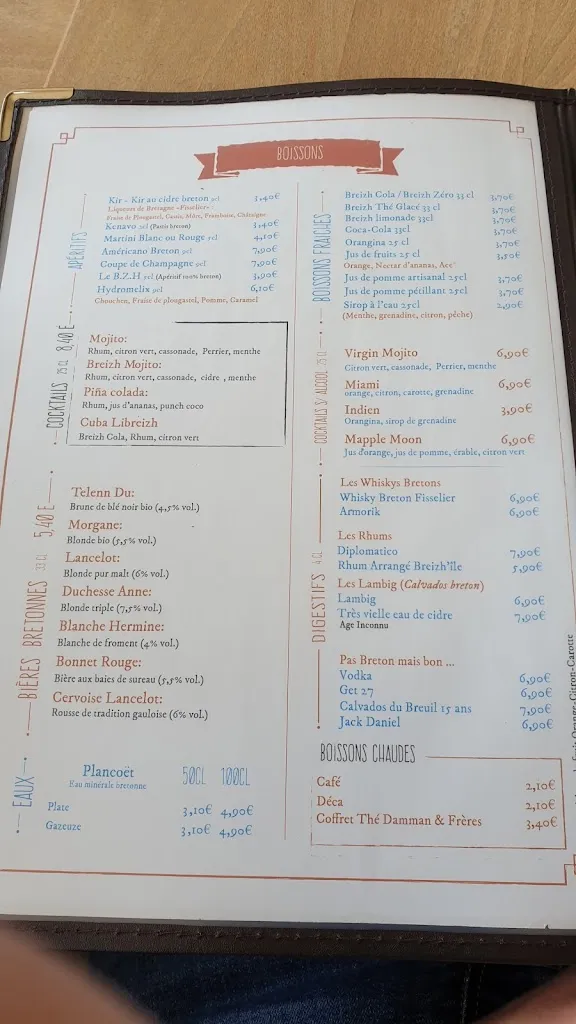 BOISSONS
APÉRITIFS
Kir - Kir au cidre breton 9cl 3,40€
Liqueurs de Bretagne «Fisselier» :
Fraise de Plougastel, Cassis, Mûre, Framboise, Châtaigne
Kenavo 2cl (Pastis breton) 3,40€
Martini Blanc ou Rouge 5cl 4,10€
Américano Breton 9cl 7,90€
Coupe de Champagne 9cl 7,90€
Le B.Z.H 5cl (Apéritif 100% breton) 3,90€
Hydromelix 9cl 6,10€
Chouchen, Fraise de plougastel, Pomme, Caramel
COCKTAILS 25 CL 8,40 E
Mojito:
Rhum, citron vert, cassonade, Perrier, menthe
Breizh Mojito:
Rhum, citron vert, cassonade, cidre , menthe
Piña colada:
Rhum, jus d'ananas, punch coco
Cuba Libreizh
Breizh Cola, Rhum, citron vert
BIÈRES BRETONNES 33 CL 5,40 E
Telenn Du:
Brune de blé noir bio (4,5% vol.)
Morgane:
Blonde bio (5,5% vol.)
Lancelot:
Blonde pur malt (6% vol.)
Duchesse Anne:
Blonde triple (7,5% vol.)
Blanche Hermine:
Blanche de froment (4% vol.)
Bonnet Rouge:
Bière aux baies de sureau (5,5% vol.)
Cervoise Lancelot:
Rousse de tradition gauloise (6% vol.)
EAUX
Plancoët 50CL 100CL
Eau minérale bretonne
Plate 3,10€ 4,90€
Gazeuze 3,10€ 4,90€
BOISSONS FRAICHES
Breizh Cola / Breizh Zéro 33 cl 3,70€
Breizh Thé Glacé 33 cl 3,70€
Breizh limonade 33cl 3,70€
Coca-Cola 33cl 3,70€
Orangina 25 cl 3,70€
Jus de fruits 25 cl 3,50€
Orange, Nectar d'ananas, Ace*
Jus de pomme artisanal 25cl 3,70€
Jus de pomme pétillant 25cl 3,70€
Sirop à l'eau 25cl 2,90€
(Menthe, grenadine, citron, pêche)
COCKTAILS S/ ALCOOL 25 CL
Virgin Mojito 6,90€
Citron vert, cassonade, Perrier, menthe
Miami 6,90€
orange, citron, carotte, grenadine
Indien 3,90€
Orangina, sirop de grenadine
Mapple Moon 6,90€
Jus d'orange, jus de pomme, érable, citron vert
DIGESTIFS 4 CL
Les Whiskys Bretons
Whisky Breton Fisselier 6,90€
Armorik 6,90€
Les Rhums
Diplomatico 7,90€
Rhum Arrangé Breizh'île 5,90€
Les Lambig (Calvados breton)
Lambig 6,90€
Très vielle eau de cidre 7,90€
Age Inconnu
Pas Breton mais bon ...
Vodka 6,90€
Get 27 6,90€
Calvados du Breuil 15 ans 7,90€
Jack Daniel 6,90€
BOISSONS CHAUDES
Café 2,10€
Déca 2,10€
Coffret Thé Damman & Frères 3,40€
Orange-Citron-Carotte